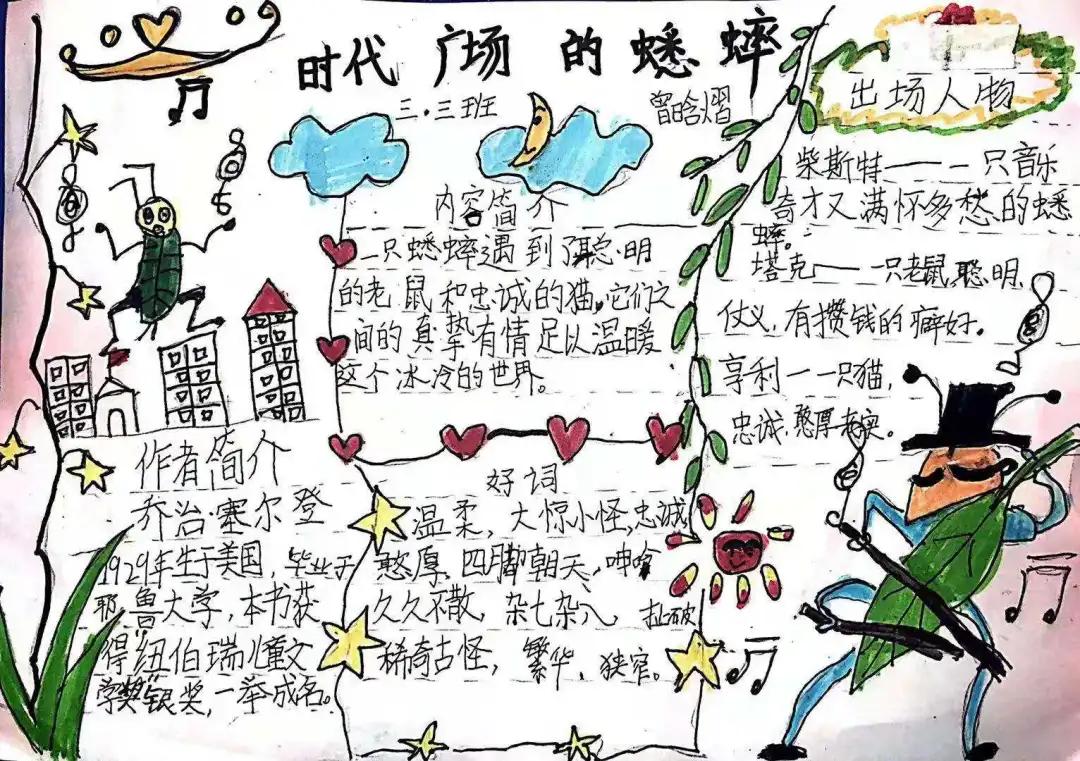 时代广场的蟋蟀
三.三班 曾晗熠
内容简介
一只蟋蟀遇到了聪明
的老鼠和忠诚的猫,它们之
间的真挚有情足以温暖
这个冰冷的世界。
出场人物
柴斯特——一只音乐
奇才又满怀多愁的蟋
蟀。
塔克——一只老鼠,聪明,
仗义,有攒钱的癖好。
亨利——一只猫,
忠诚,憨厚老实。
作者简介
乔治·塞尔登
1929年生于美国,毕业于
耶鲁大学,本书获
得纽伯瑞儿童文
学奖银奖,一举成名。
好词
温柔,大惊小怪,忠诚
憨厚,四脚朝天,呻吟
久久不散,杂七杂八,扯破
稀奇古怪,繁华,狭窄。